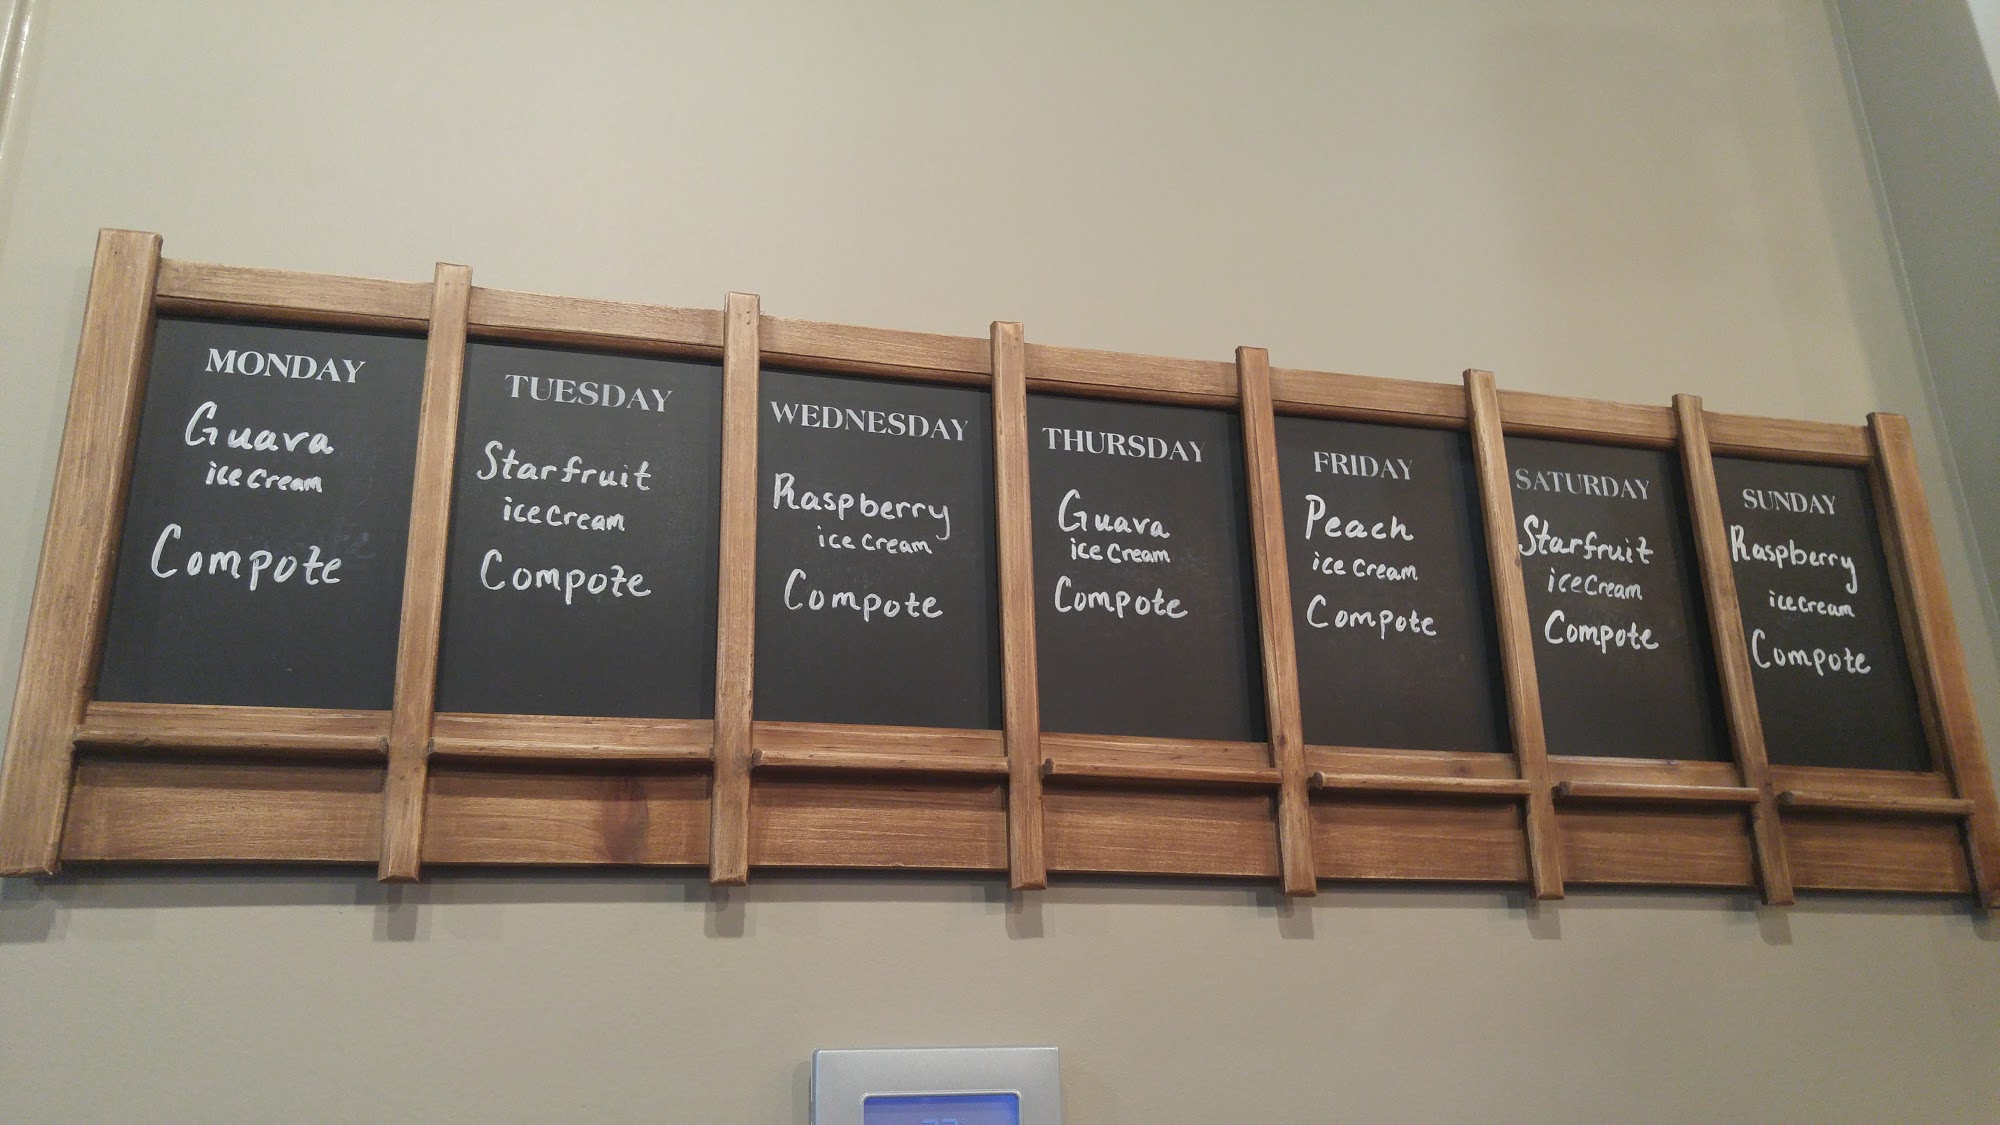 MONDAY
Guava
ice cream
Compote
TUESDAY
Starfruit
ice cream
Compote
WEDNESDAY
Raspberry
ice cream
Compote
THURSDAY
Guava
ice cream
Compote
FRIDAY
Peach
ice cream
Compote
SATURDAY
Starfruit
ice cream
Compote
SUNDAY
Raspberry
ice cream
Compote